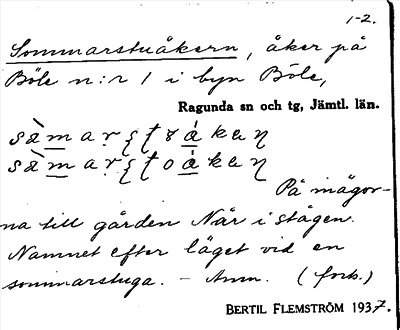 1-2.
Sommarstuåkern, åker på
Böle n:r 1 i byn Böle,
Ragunda sn och tg, Jämtl. län.
På mägor-
na till gården När i stågen.
Namnet efter läget vid en
sommarstuga. – Anm. (forts.)
BERTIL FLEMSTRÖM 1937.